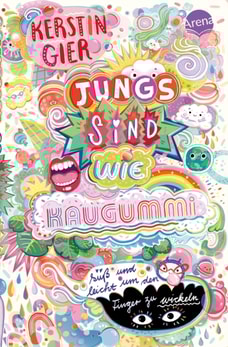 KERSTIN
GIER
Arena
JUNGS
SIND
WIE
KAUGUMMI
süß und
leicht um den
Finger zu wickeln